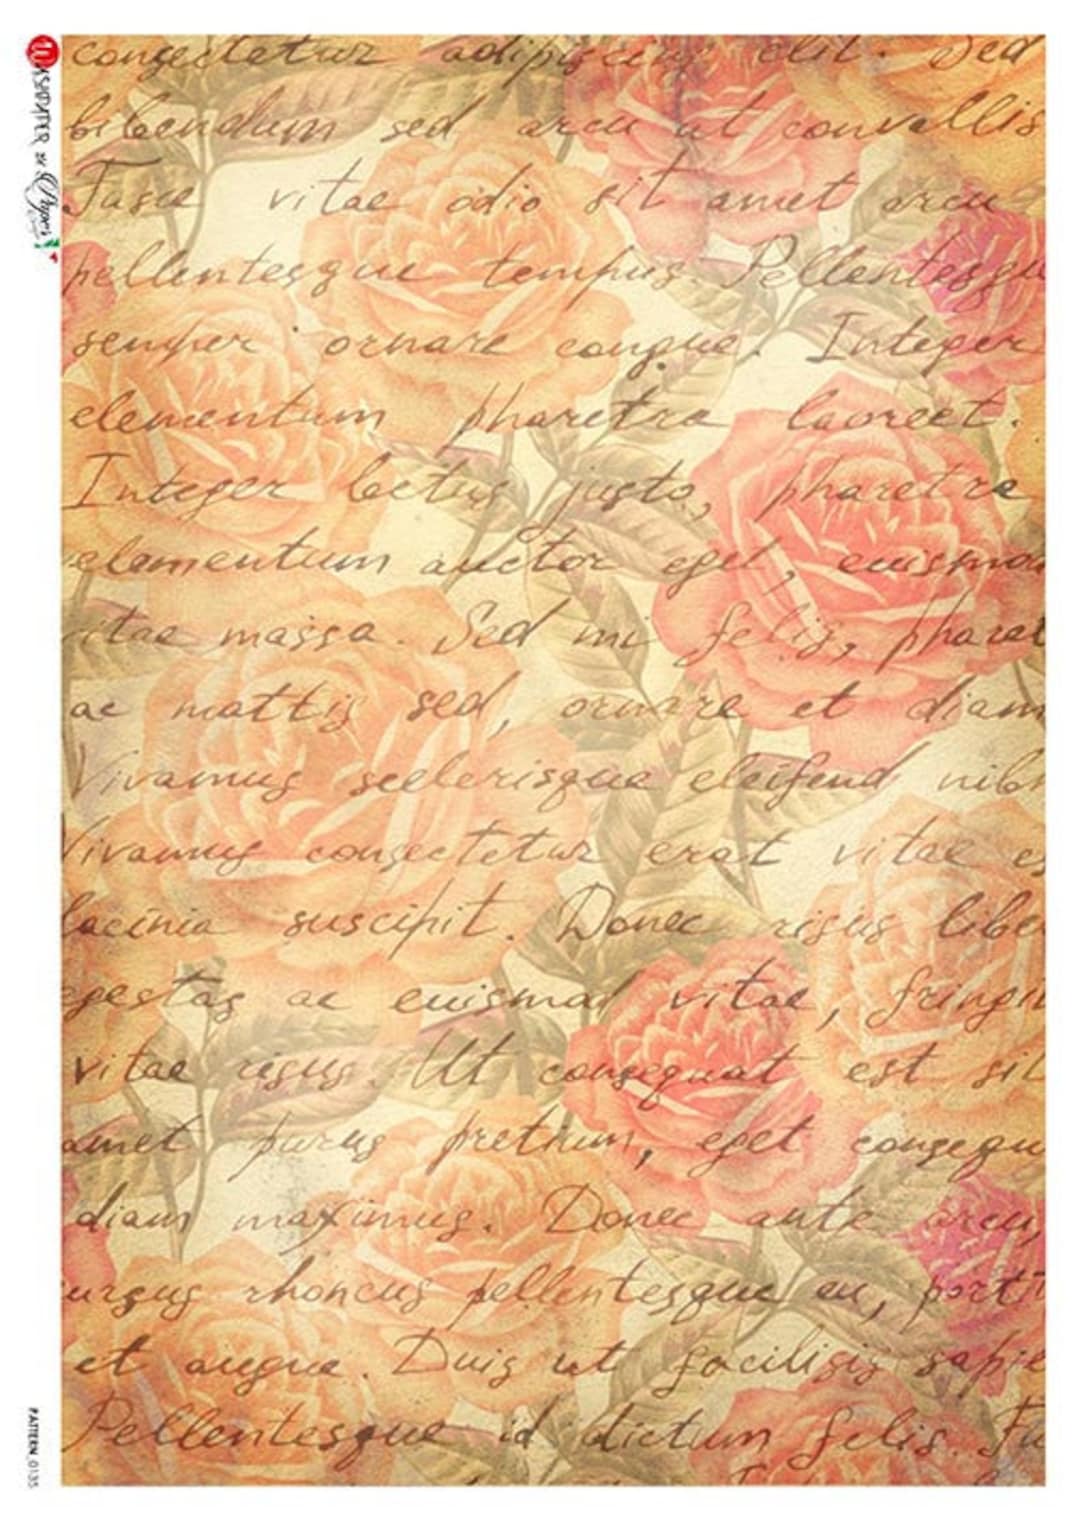 consectetur adipiscing elit. Sed
bibendum sed arcu ut convallis
Fusce vitae odio sit amet arcu
pellentesque tempus. Pellentesqu
semper ornare congue. Integer
elementum pharetra laoreet.
Integer lectus justo, pharetra
elementum auctor eget, euismod
itae massa. Sed mi felis, pharet
ac mattis sed, ornare et diam
Vivamus scelerisque eleifend nibh
Vivamus consectetur erat vitae es
lacinia suscipit. Donec risus libe
egestas ac euismod vitae, fringil
vitae risus. Ut consequat est sit
amet purus pretium, eget consequ
diam maximus. Donec ante arcu,
ursus rhoncus pellentesque eu, porti
et augue. Duis ut facilisis sapie
Pellentesque id dictum felis. Fu
PATTERN_0135